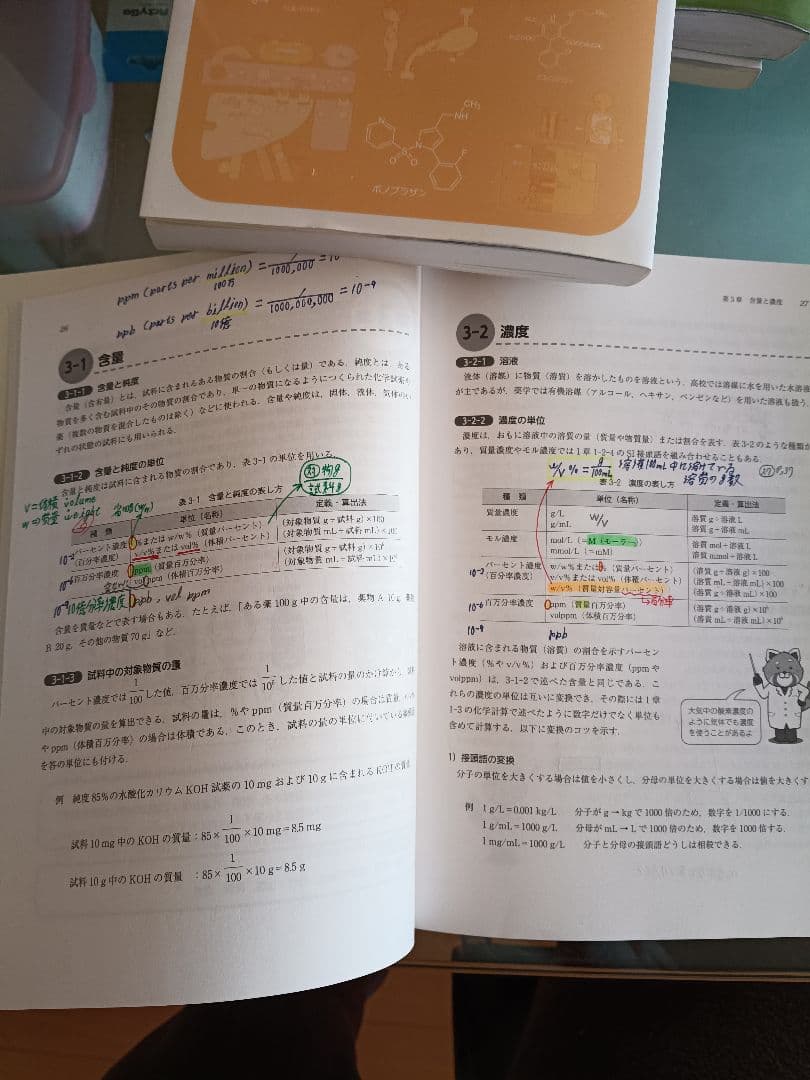 CH₃
NH
N
O
S
O
F
ボノプラザン
ppm (parts per million) = 1/1000,000 = 10
100万
ppb (parts per billion) = 1/1000,000,000 = 10⁻⁹
10億
26
3-1 含量
3-1-1 含量と純度
含量(含有量)とは,試料に含まれるある物質の割合(もしくは量)である.純度とは,ある
物質を多く含む試料中のその物質の割合であり,単一の物質になるようにつくられた化学試薬や
薬(複数の物質を混合したものは除く)などに使われる.含量や純度は,固体,液体,気体のい
ずれの状態の試料にも用いられる.
3-1-2 含量と純度の単位
含量と純度は試料に含まれる物質の割合であり,表3-1の単位を用いる.
V=体積 volume
w=質量 weight
省略(w/w)
対物g
試料g
表3-1 含量と純度の表し方
種類 単位(名称) 定義・算出法
10⁻² パーセント濃度 %または w/w%(質量パーセント) (対象物質 g÷試料 g)×100
(百分率濃度) v/v%または vol%(体積パーセント) (対象物質 mL÷試料 mL)×100
10⁻⁶ 百万分率濃度 ppm(質量百万分率) (対象物質 g÷試料 g)×10⁶
volppm(体積百万分率) (対象物質 mL÷試料 mL)×10⁶
10⁻⁹ 10億分率濃度 ppb, vol ppm
含量を質量などで表す場合もある.たとえば,「ある薬 100 g 中の含量は,薬物 A 10 g,
B 20 g,その他の物質 70 g」など.
3-1-3 試料中の対象物質の量
パーセント濃度では 1/100 した値,百万分率濃度では 1/10⁶ した値と試料の量のかけ算から,試料
中の対象物質の量を算出できる.試料の量は,%や ppm(質量百万分率)の場合は質量,
や ppm(体積百万分率)の場合は体積である.このとき,試料の量の単位に付いている接頭語
を答の単位にも付ける.
例 純度 85%の水酸化カリウム KOH 試薬の 10 mg および 10 g に含まれる KOH の質量
試料 10 mg 中の KOH の質量:85×1/100×10 mg=8.5 mg
試料 10 g 中の KOH の質量 :85×1/100×10 g=8.5 g
第3章 含量と濃度 27
3-2 濃度
3-2-1 溶液
液体(溶媒)に物質(溶質)を溶かしたものを溶液という.高校では溶媒に水を用いた水溶液
が主であるが,薬学では有機溶媒(アルコール,ヘキサン,ベンゼンなど)を用いた溶液も扱う.
3-2-2 濃度の単位
濃度は,おもに溶液中の溶質の量(質量や物質量)または割合を表す.表3-2のような種類が
あり,質量濃度やモル濃度では1章1-2-4のSI接頭語を組み合わせることもある.
w/v % = g/100mL 溶液100mL中に溶けてる
溶質のg数
表3-2 濃度の表し方
種類 単位(名称) 定義・算出法
質量濃度 g/L 溶質 g÷溶液 L
g/mL w/v 溶質 g÷溶液 mL
モル濃度 mol/L(=M(モーラー)) 溶質 mol÷溶液 L
mmol/L(=mM) 溶質 mmol÷溶液 L
10⁻² パーセント濃度 w/w%または%(質量パーセント) (溶質 g÷溶液 g)×100
(百分率濃度) v/v%または vol%(体積パーセント) (溶質 mL÷溶液 mL)×100
w/v%(質量対容量パーセント) (溶質 g÷溶液 mL)×100
百分率
10⁻⁶ 百万分率濃度 ppm(質量百万分率) (溶質 g÷溶液 g)×10⁶
volppm(体積百万分率) (溶質 mL÷溶液 mL)×10⁶
10⁻⁹ ppb
溶液に含まれる物質(溶質)の割合を示すパーセン
ト濃度(%や v/v%)および百万分率濃度(ppm や
volppm)は,3-1-2で述べた含量と同じである.こ
れらの濃度の単位は互いに変換でき,その際には1章
1-3の化学計算で述べたように数字だけでなく単位も
含めて計算する.以下に変換のコツを示す.
大気中の酸素濃度の
ように気体でも濃度
を使うことがあるよ
1)接頭語の変換
分子の単位を大きくする場合は値を小さくし,分母の単位を大きくする場合は値を大きくす
例 1 g/L=0.001 kg/L 分子が g→kg で 1000 倍のため,数字を 1/1000 にする.
1 g/mL=1000 g/L 分母が mL→L で 1000 倍のため,数字を 1000 倍する.
1 mg/mL=1000 g/L 分子と分母の接頭語どうしは相殺できる.